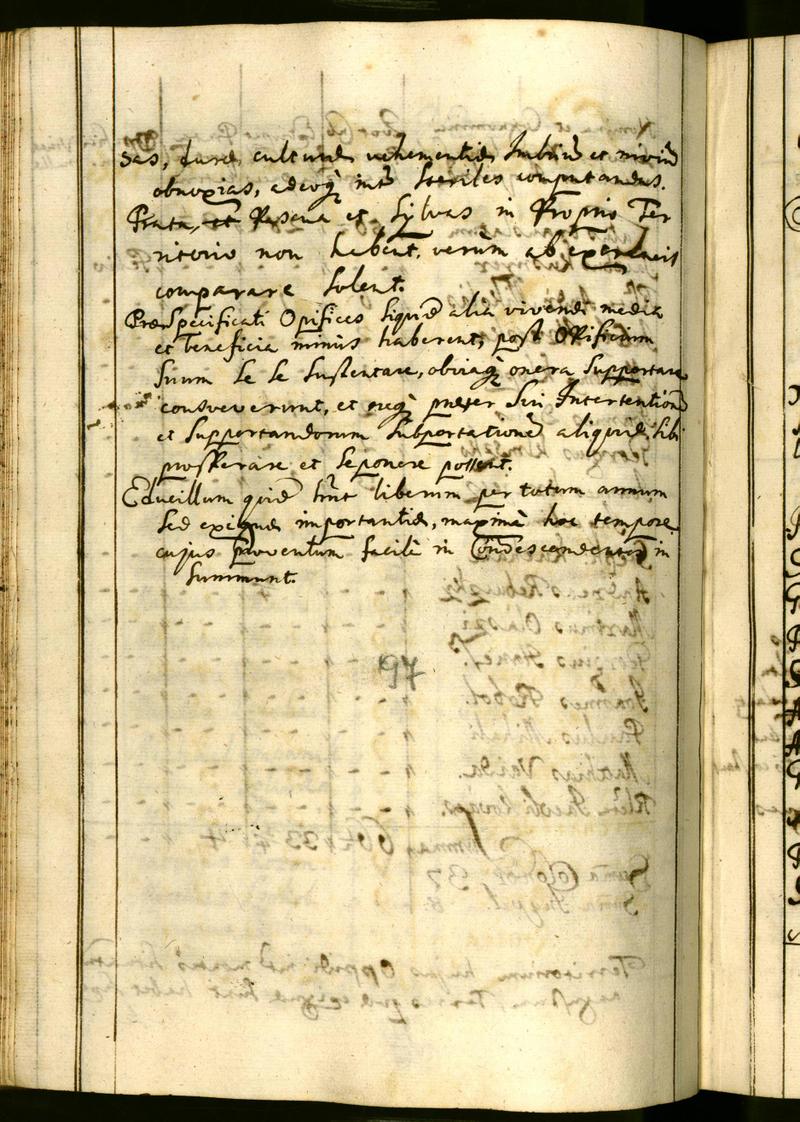 sas, duræ culturæ vehementiæ Imbriū et niviū
obnoxias, adeoq; intr̄ steriles computandas.
Prata, et Pascua et Sylvas in Proprio Ter
ritorio non habent, verùm ab
comparare solent.
Præspecificati Opifices siquidē alia vivendi media
et beneficia minus haberent, post Opificium
suum se se sustentare, obviaq; onera supportare
consveverunt, et neq; præter Sui Intertentionē
et supportandorum subportationē aliquid sibi
prosperare et seponere possent.
Educillum quidē hn̄t liberum per totum annum
sed exiguæ importantiæ, maximè hoc tempore
cujus proventum facilè in Condescensionē in
summunt.
97